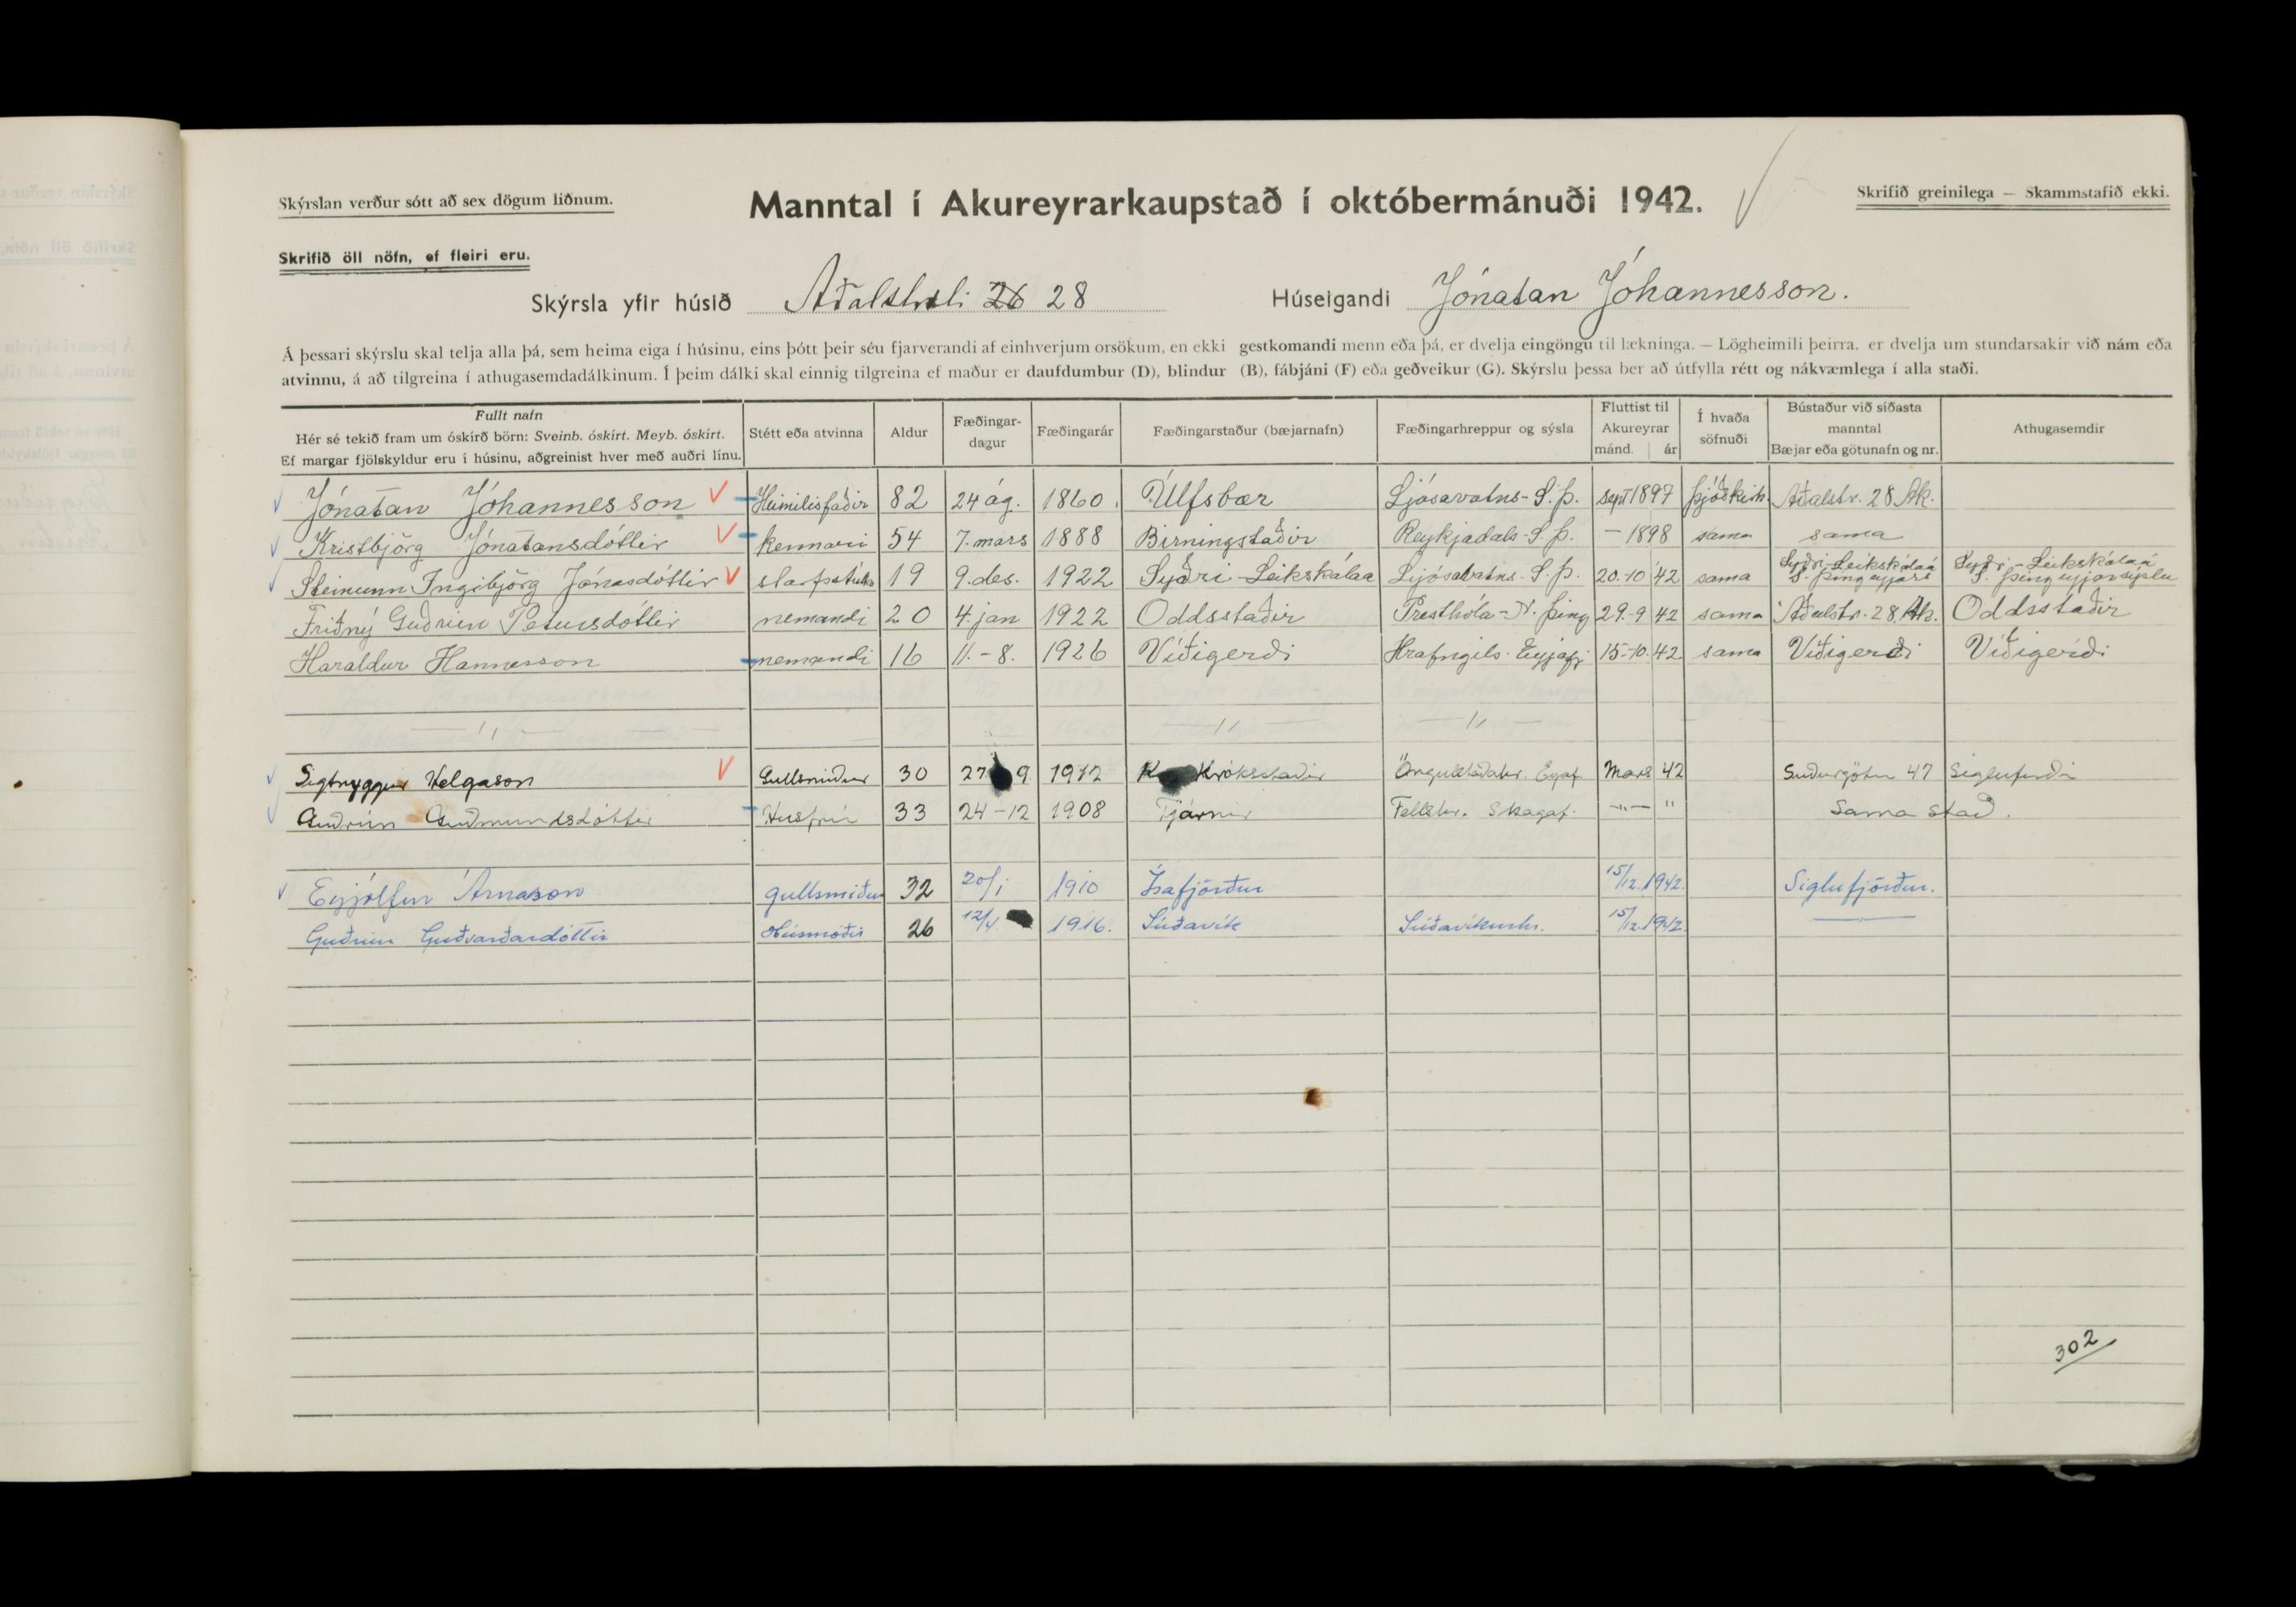 Skýrslan verður sótt að sex dögum liðnum.
Manntal í Akureyrarkaupstað í októbermánuði 1942.
Skrifið greinilega — Skammstafið ekki.
Skrifið öll nöfn, ef fleiri eru.
Skýrsla yfir húsið Aðalstræti 26 28 Húseigandi Jónatan Jóhannesson.
Á þessari skýrslu skal telja alla þá, sem heima eiga í húsinu, eins þótt þeir séu fjarverandi af einhverjum orsökum, en ekki gestkomandi menn eða þá, er dvelja eingöngu til lækninga. — Lögheimili þeirra. er dvelja um stundarsakir við nám eða
atvinnu, á að tilgreina í athugasemdadálkinum. Í þeim dálki skal einnig tilgreina ef maður er daufdumbur (D), blindur (B), fábjáni (F) eða geðveikur (G). Skýrslu þessa ber að útfylla rétt og nákvæmlega í alla staði.
Fullt nafn
Hér sé tekið fram um óskírð börn: Sveinb. óskírt. Meyb. óskírt.
Ef margar fjölskyldur eru í húsinu, aðgreinist hver með auðri línu.
Stétt eða atvinna
Aldur
Fæðingar-
dagur
Fæðingarár
Fæðingarstaður (bæjarnafn)
Fæðingarhreppur og sýsla
Fluttist til
Akureyrar
mánd. ár
Í hvaða
söfnuði
Bústaður við síðasta
manntal
Bæjar eða götunafn og nr.
Athugasemdir
Jónatan Jóhannesson Heimilisfaðir 82 24 ág. 1860. Úlfsbær Ljósavatns-S.þ. sept 1897 þjóðkirk. Aðalstr. 28 Ak.
Kristbjörg Jónatansdóttir kennari 54 7. mars 1888 Birningstaðir Reykjadals-S.þ. – 1898 sama sama
Steinunn Ingibjörg Jónasdóttir starfsstúlka 19 9. des. 1922 Syðri-Leikskálaá Ljósavatns-S.þ. 20.-10 '42 sama Syðri-Leikskálaá S. þingeyjars Syðri-Leikskálaá S. þingeyjarsýslu
Friðný Guðrún Pétursdóttir nemandi 20 4. jan 1922 Oddsstaðir Presthóla-N. þing 29.-9 42 sama Aðalstr. 28 Ak. Oddsstaðir
Haraldur Hannesson nemandi 16 11.-8. 1926 Víðigerði Hrafngils. Eyjafj 15.-10. 42 sama Víðigerði Víðigerði
— 〃 — — 〃 — — 〃 —
Sigtryggur Helgason Gullsmiður 30 27 9 1912 Króksstaðir Öngulstaðahr. Eyjaf Mars 42 Suðurgötu 47 Siglufirði
Guðrún Guðmundsdóttir Húsfrú 33 24-12 1908 Tjarnir Fellshr. Skagaf. —〃— 〃 Sama stað.
Eyjólfur Árnason gullsmiður 32 20/1 1910 Ísafjörður 15/12. 1942. Siglufjörður.
Guðrún Guðvarðardóttir Húsmóðir 26 12/4 1916. Súðavík Súðavíkurhr. 15/12. 1942. —
302